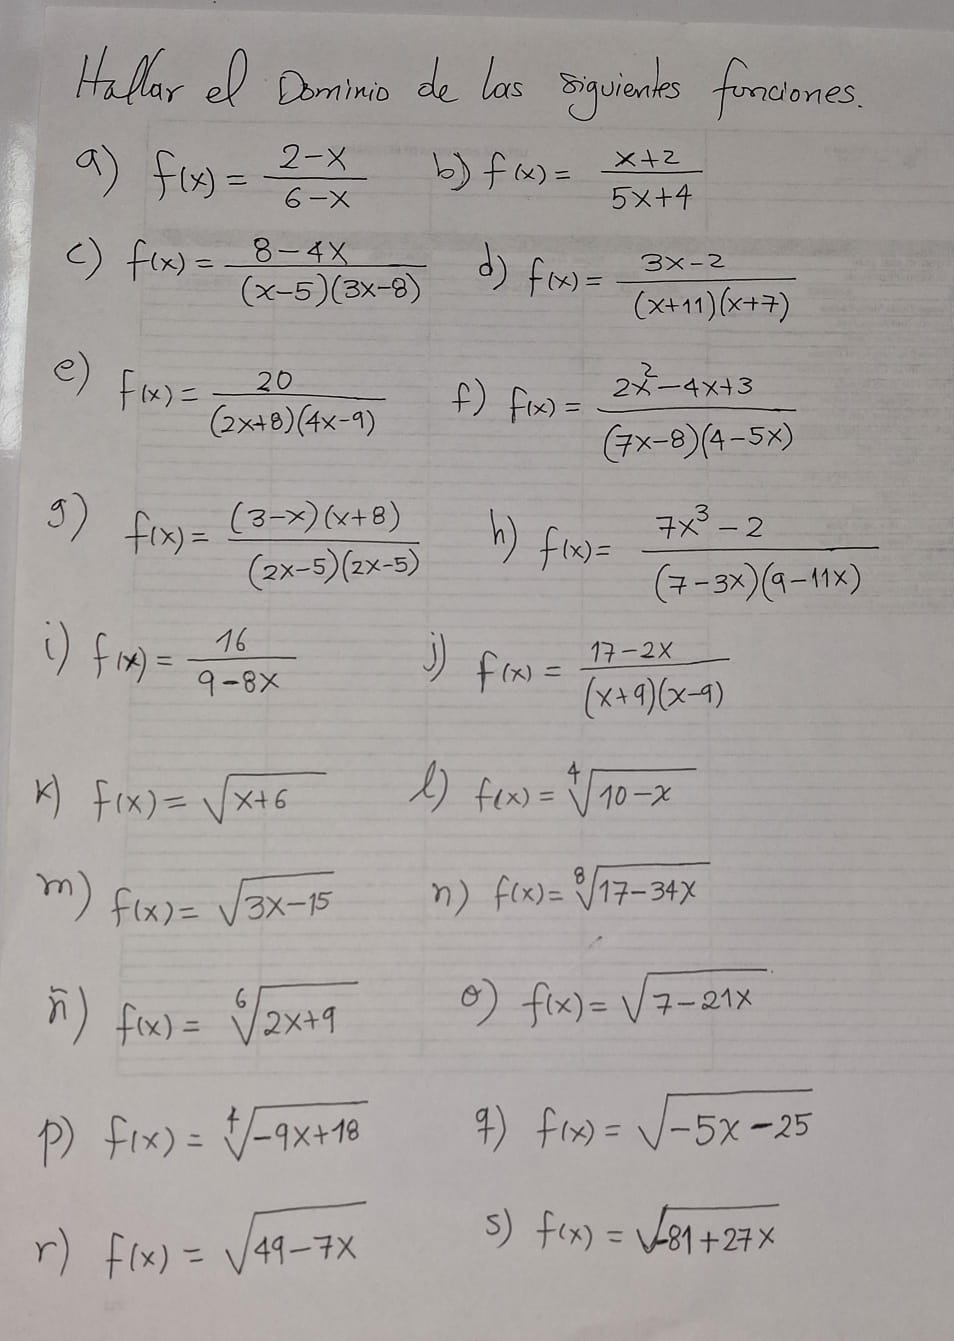 Hallar el Dominio de las siguientes funciones.
a) f(x) = (2-x)/(6-x) b) f(x) = (x+2)/(5x+4)
c) f(x) = (8-4x)/((x-5)(3x-8)) d) f(x) = (3x-2)/((x+11)(x+7))
e) f(x) = 20/((2x+8)(4x-9)) f) f(x) = (2x²-4x+3)/((7x-8)(4-5x))
g) f(x) = ((3-x)(x+8))/((2x-5)(2x-5)) h) f(x) = (7x³-2)/((7-3x)(9-11x))
i) f(x) = 16/(9-8x) j) f(x) = (17-2x)/((x+9)(x-9))
k) f(x) = √(x+6) l) f(x) = ⁴√(10-x)
m) f(x) = √(3x-15) n) f(x) = ⁸√(17-34x)
ñ) f(x) = ⁶√(2x+9) o) f(x) = √(7-21x)
p) f(x) = ⁴√(-9x+18) q) f(x) = √(-5x-25)
r) f(x) = √(49-7x) s) f(x) = √(-81+27x)